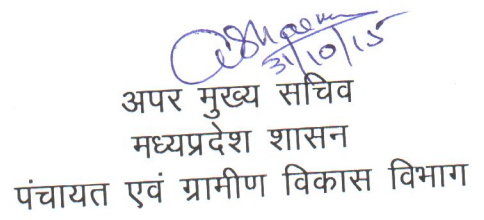 31/10/15
अपर मुख्य सचिव
मध्यप्रदेश शासन
पंचायत एवं ग्रामीण विकास विभाग